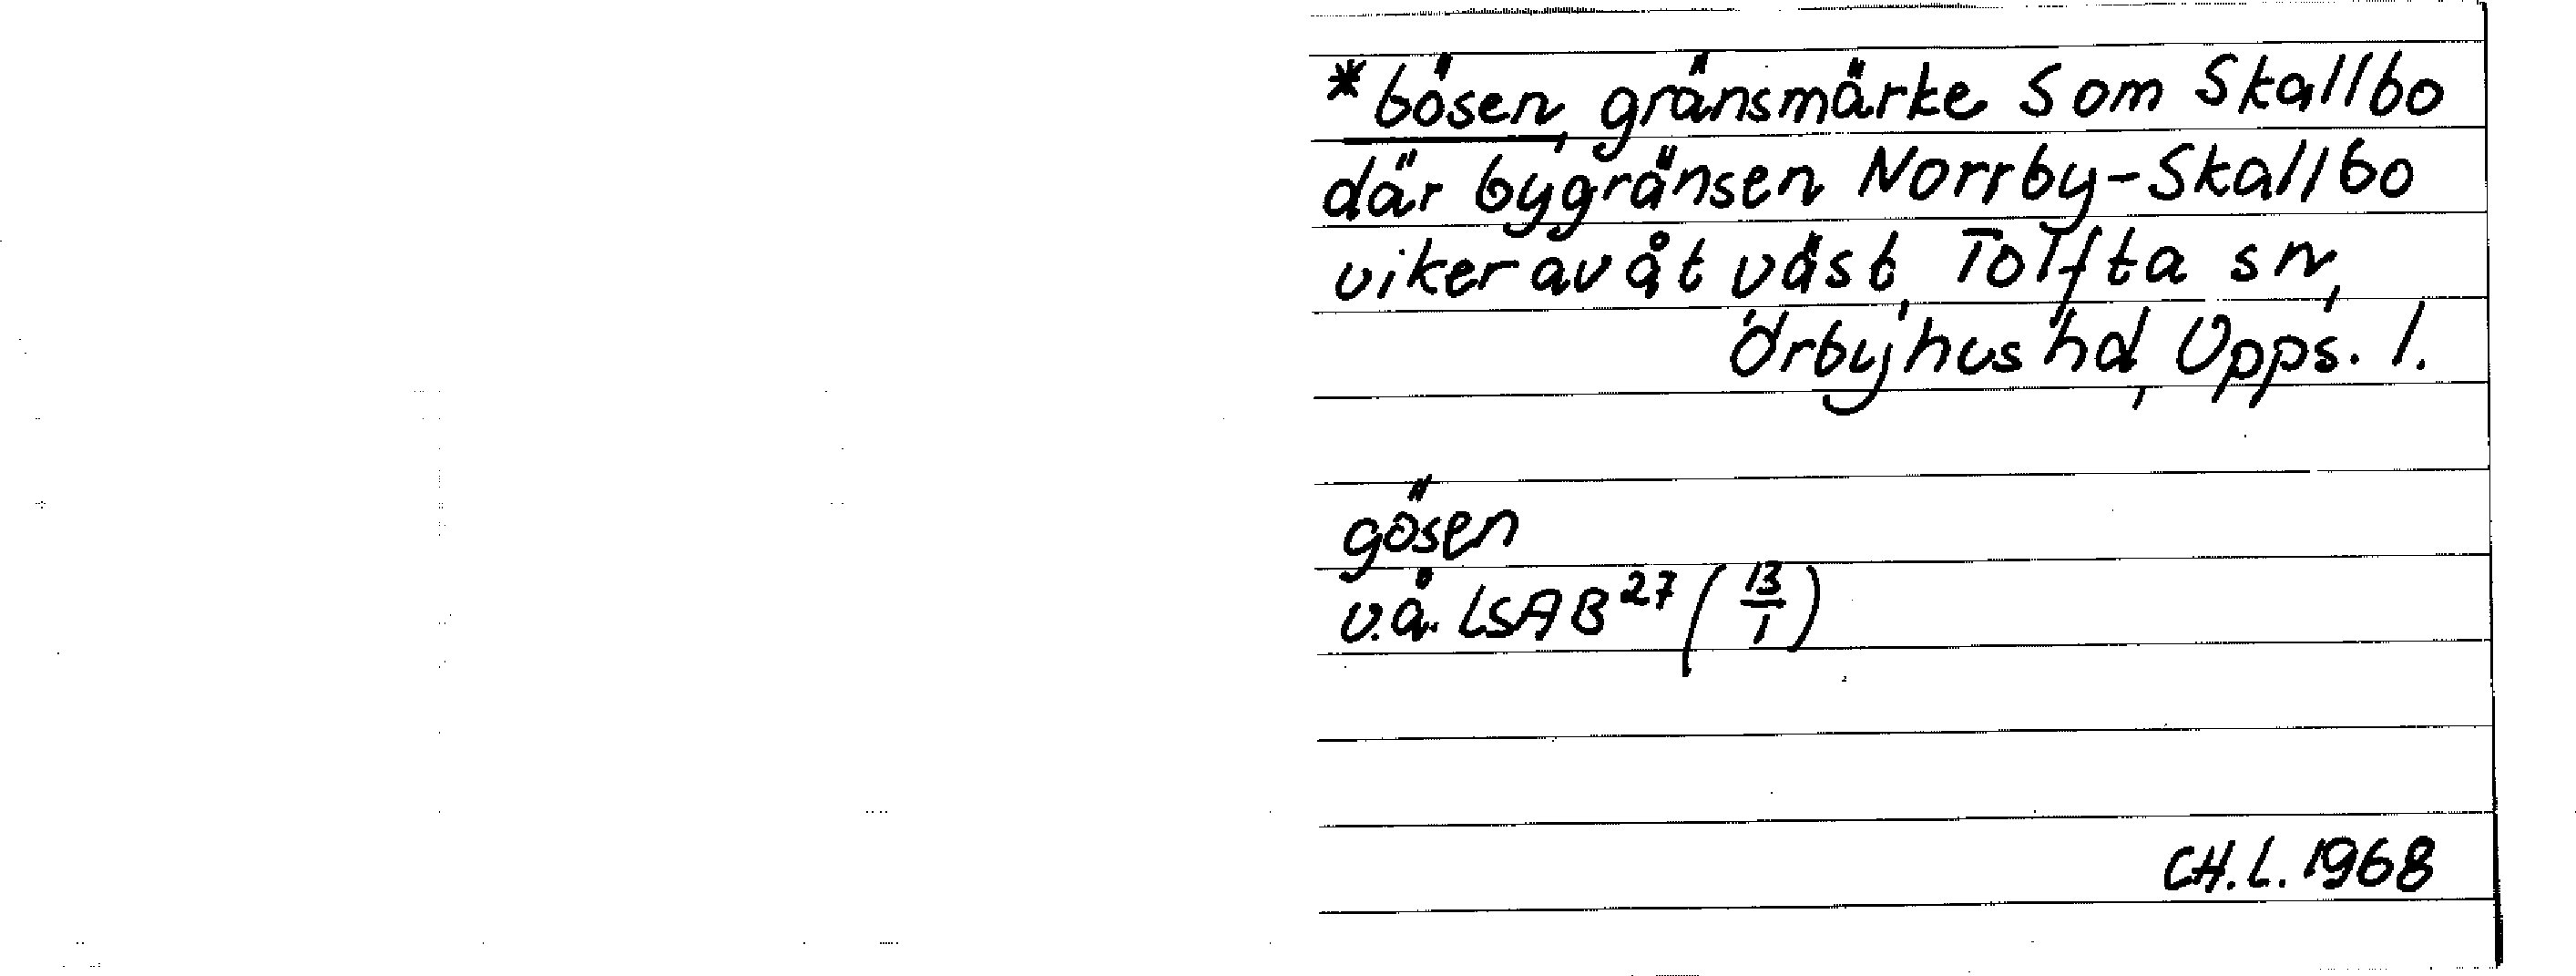 *bösen, gränsmärke Som Skallbo
där bygränsen Norrby-Skallbo
viker av åt väst, Tolfta sn,
Örbyhus hd, Upps. l.
gösen
v.å. LSA B²⁷ (13/1)
CH.L. 1968